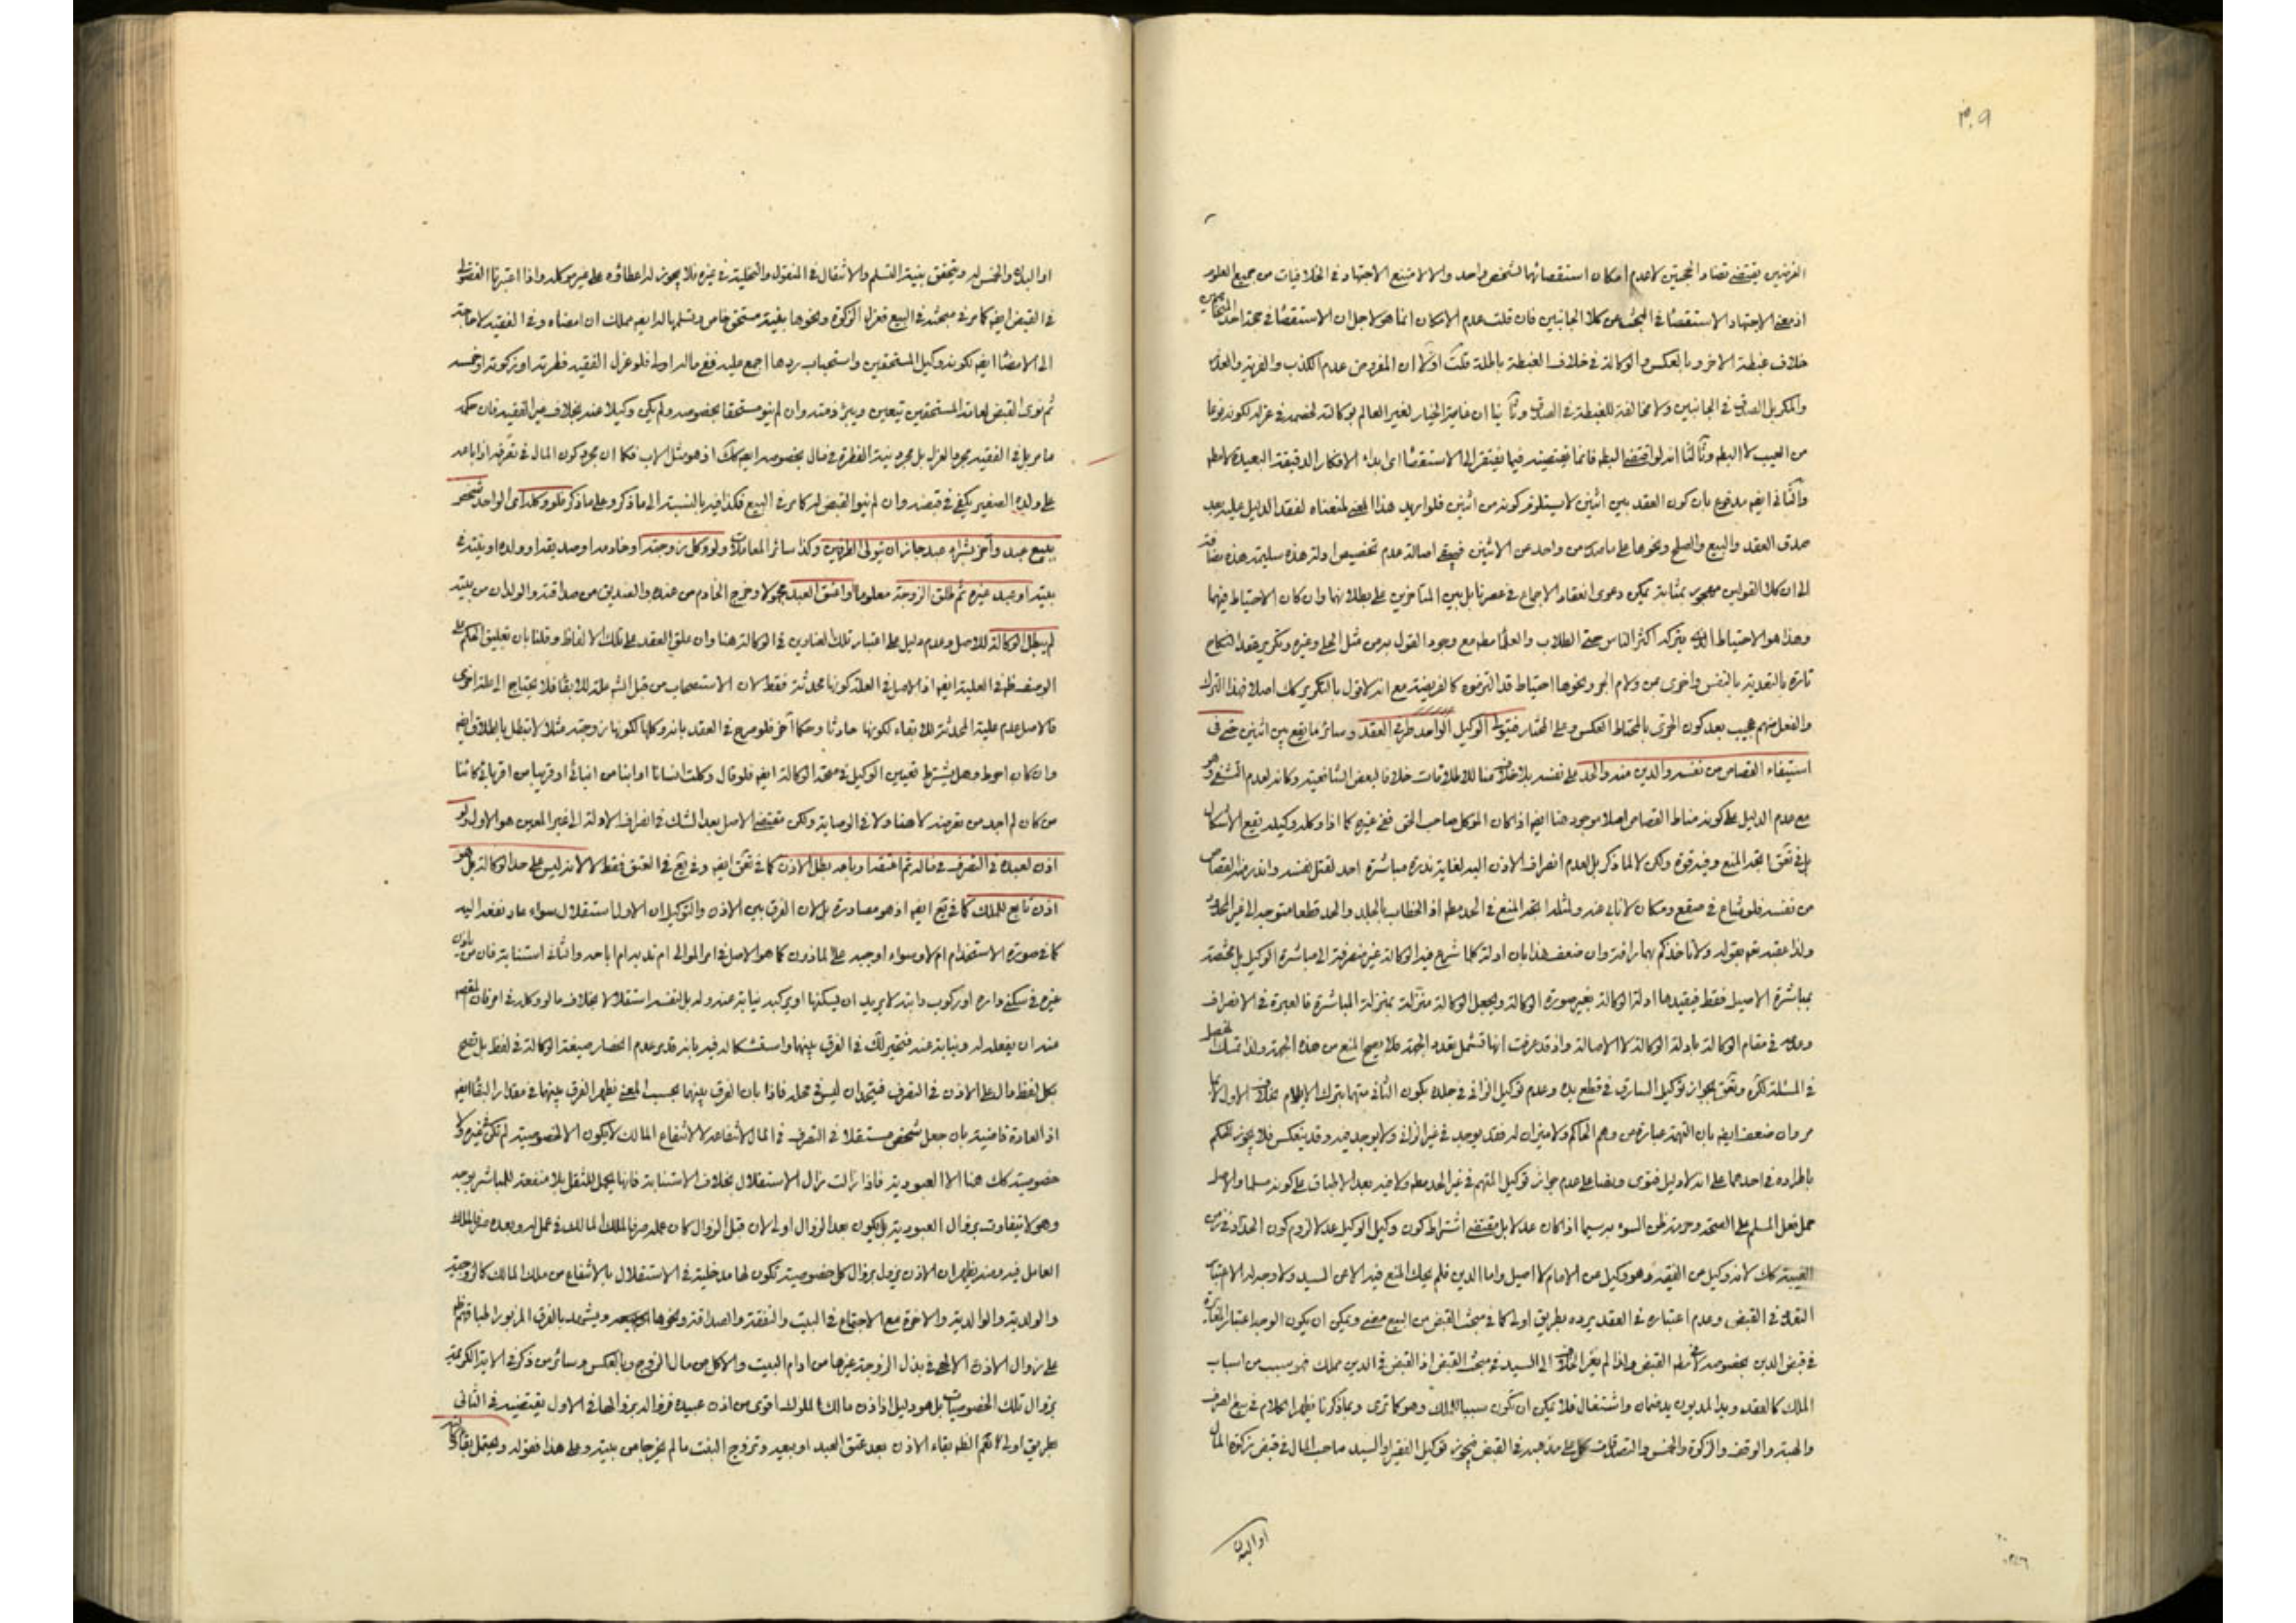 ٣٠٩
الغرضين يقتضى تضاد الجهتين لا عدم امكان استقصائهما لشخص واحد والا لامتنع الاجتهاد فى الخلافيات من جميع العلوم
اذ معنى الاجتهاد الاستقصاء فى البحث عن كلا الجانبين فان قلت عدم الامكان انما هو لاجل ان الاستقصاء فى صحة احد
خلاف غبطة الاخر وبالعكس والوكالة فى خلاف الغبطة باطلة قلت اولا ان المفروض عدم الكذب والفرية والعذر
والمكر بل الصدق فى الجانبين ولا مخالفة للغبطة فى الصدق وثانيا ان غايته الخيار لغير العالم بوكالته لخصمه فى عزله لكونه نوعا
من العيب لا البطلان وثالثا انه لو اقتضى البطلان فانما يقتضيه فيما يفتقر الى الاستقصاء اى بداء الافكار الدقيقة البعيدة لا مطلقا
والثانى ايضا مدفوع بان كون العقد بين اثنين لا يستلزم كونه من اثنين فلو اريد هذا المعنى لمنعناه لفقد الدليل عليه بعد
صدق العقد والبيع والصلح ونحوها على ما صدر من واحد عن الاثنين فيبقى اصالة عدم تخصيص ادلة هذه سليمة هذه مضافة
الى ان كلا القولين مهجور بمثابة يمكن دعوى انعقاد الاجماع فى عصرنا بل بين المتاخرين على بطلانهما وان كان الاحتياط فيهما
وهذا هو الاحتياط الذى يتركه اكثر الناس حتى الطلاب والعلماء مع وجود القول به من مثل الحلى وغيره وتكرير عقد النكاح
تارة بالتعدية بالنفس واخرى بمن ولام الجر ونحوها احتياط قد التزموه كالفريضة مع انه لا قول بالتكرير كك اصلا فهذا الترك
والفعل منهم عجيب بعد كون الحرى بالمحتاط العكس وعلى المختار فيتولى الوكيل الواحد طرفى العقد وسائر ما يقع بين اثنين حتى فى
استيفاء القصاص من نفسه والدين منه والحد على نفسه بلا خلاف منا للاطلاقات خلافا لبعض الشافعية وكانه لعدم التشفى وهو
مع عدم الدليل على كونه مناط القصاص اصلا موجود هنا ايضا اذا كان الموكل صاحب الحق ففى غيره كما اذا وكله وكيله يقع الاشكال
بل فى تعق اتجه المنع وفيه قوة ولكن لا لما ذكر بل لعدم انصراف الاذن اليه لغاية ندرة مباشرة احد لقتل نفسه واندر منه القصاص
من نفسه فلو شاع فى صقع ومكان لا نابى عنه ولمثله اتجه المنع فى الحد مطلقا اذ الخطاب بالجلد والحد قطعا متوجه الى غير المحدود
ولذا عقبه تعالى بقوله ولا تاخذكم بهما رافة وان ضعف هذا بان ادلة كلما شرع فيه الوكالة غير منصرفة الى مباشرة الوكيل بل مختصة
بمباشرة الاصيل فقط فيقيدها ادلة الوكالة بغير صورة الوكالة ويجعل الوكالة منزلة بمنزلة المباشرة فالعبرة فى الانصراف
وعدمه فى مقام الوكالة بادلة الوكالة لا الاصالة واذ قد عرفت انها تشمل بعدد الجهة فلا يصح المنع من هذه الجهة ولذا تمسك
فى المسئلة لكره وتعق بجواز توكيل السارق فى قطع يده وعدم توكيل الزانى فى جلده بكون الثانى متهما بترك الايلام بخلاف الاول لما
مر وان ضعف ايضا بان التهمة عبارة من وهم الحاكم ولا ميزان له فقد يوجد فى غير الزانى ولا يوجد فيه وقد ينعكس فلا يجوز الحكم
باطراده فى احدهما على انه لا دليل فتوى ونصا على عدم جواز توكيل المتهم فى غير الحد مطلقا ولا فيه بعد الاطباق على كونه مسلما والاصل
حمل فعل المسلم على الصحة وحرمة ظن السوء به سيما اذا كان عدلا بل مقتضى اشتراط كون وكيل الوكيل عدلا لزوم كون الحداد فى زمن
الغيبة كك لانه وكيل من الفقيه وهو وكيل من الامام لا اصيل واما الدين فلم يحك المنع فيه الا عن السيد ولا وجه له الا اعتبار
التعدد فى القبض وعدم اعتباره فى العقد يرده بطريق اولى كما فى مبحث القبض من البيع مضى ويمكن ان يكون الوجه اعتبار المغايرة
فى قبض الدين بخصوصه لا فى مطلق القبض ولذا لم يعز الخلاف الى السيد فى مبحث القبض اذ القبض فى الدين مملك فهو سبب من اسباب
الملك كالعقد ويد المديون يد ضمان واشتغال فلا يمكن ان تكون سببا للملك وهو كما ترى وبما ذكرنا ظهر الكلام فى بيع الصرف
والهبة والوقف والزكوة والخمس والتصدقات كل على مذهبه فى القبض فيجوز توكيل الفقير او السيد صاحب المال فى قبض زكوة المال
او البدن
او البدن والخمس له ويتحقق بنية التسلم والانتقال فى المنقول والتخلية فى غيره فلا يجوز له اعطاؤه على غير موكله واذا اعتبرنا الفضولى
فى القبض ايضا كما مر فى مبحثه فى البيع فعزل الزكوة ونحوها بغية مستحق خاص وتسلمها له ايضا مملك ان امضاه وفى الفقيه لا حاجة
الى الامضاء ايضا لكونه وكيل المستحقين واستحباب ردها اجمع عليه ففى ماله اولى فلو عزل الفقيه فطرته او زكوته او خمسه
ثم نوى القبض لعامة المستحقين تيعين ويبرء ذمته وان لم ينو مستحقا بخصوصه ولم يكن وكيلا عنه بخلاف غير الفقيه فان حكمه
ما مر بل فى الفقيه مجرد العزل بل مجرد نية الفطرة فى مال بخصوصه ايضا كك اذ هو مثل الاب فكما ان مجرد كون المال فى تصرفه اذا باعه
على ولده الصغير يكفى فى قبضه وان لم ينو القبض له كما مر فى البيع فكذا فيه بالنسبة الى ما ذكر وعلى ما ذكر فلو وكله اى الواحد شخص
ببيع عبد وآخر بشراء عبد جاز ان يتولى الطرفين وكذا سائر المعاملات ولو وكل زوجته او خادمه او صديقه او ولده او بنته فى
بيته او عبد غيره ثم طلق الزوجة معلوما او اعتق العبد مجهولا وخرج الخادم من عنده والصديق من صداقته والولدان من بيته
لم يبطل الوكالة للاصل وعدم دليل على اعتبار تلك العناوين فى الوكالة هنا وان علق العقد على تلك الالفاظ وقلنا بان تعليق الحكم على
الوصف ظاهر فى العلية ايضا اذ الاصل فى العلة كونها محدثة فقط لان الاستصحاب من قبل الشرع علة للبقاء فلا يحتاج الى علة اخرى
فالاصل عدم علية المحدثة للابقاء لكونها حادثا وحكما آخر فلو صرح فى العقد بانه وكلها لكونها زوجته مثلا لا تبطل بالطلاق ايضا
وان كان احوط وهل يشترط تعيين الوكيل فى صحة الوكالة ايضا فلو قال وكلت انسانا او ابنا من ابنائى او قريبا من اقربائى كائنا
من كان لم اجد من تعرضه لا هنا ولا فى الوصاية ولكن مقتضى الاصل بعد الشك فى انصراف الادلة الى غير المعين هو الاول ولو
اذن لعبده فى التصرف فى ماله ثم اعتقه او باعه بطل الاذن كما فى تعق ايضا وفى يع فى العتق فقط لا لانه ليس على حد الوكالة بل هو
اذن تابع للملك كما فى يع ايضا اذ هو مصادرة بل لان الفرق بين الاذن والتوكيل ان الاول استقلال سواء عاد نفعه اليه
كما فى صورة الاستخدام ام لا وسواء اوجبه على الماذون كما هو الاصل فى امر الموالى ام ندبه ام اباحه والثانى استنابة فان من ياذن
غيره فى سكنى داره او ركوب دابته لا يريد ان يسكنها او يركبه نيابة عنه وله بل لنفسه استقلالا بخلاف ما لو وكله فى امر فان المقصود
منه ان يفعله له ونيابة عنه فتحير لك فى الفرق بينهما واستشكاله فيه بانه قد مر عدم انحصار صيغة الوكالة فى لفظ بل يصح
بكل لفظ دال على الاذن فى التصرف فيتحدان ليس فى محله فاذا بان الفرق بينهما بحسب المعنى يظهر الفرق بينهما فى مقدار البقاء ايضا
اذ العادة قاضية بان جعل شخص مستقلا فى التصرف فى المال لانتفاعه لا لانتفاع المالك لا يكون الا لخصوصية لم تكن فى غيره ولا
خصوصية كك هنا الا العبودية فاذا زالت زال الاستقلال بخلاف الاستنابة فانها يحمل للثقل بلا منفعة للمباشر بوجه
وهو لا يتفاوت بزوال العبودية بل يكون بعد الزوال اولى لان قبل الزوال كان عمله صرفا لملك المالك فى عمل له وبعده صرفا لملك
العامل فيه ومنه يظهر ان الاذن يزول بزوال كل خصوصية تكون لها مدخلية فى الاستقلال بالانتفاع من ملك المالك كالزوجية
والولدية والوالدية والاخوة مع الاجتماع فى البيت والنفقة والصداقة ونحوها ويشهد بالفرق المزبور اطباقهم
على زوال الاذن الالهى فى بذل الزوجة غيرها من ادام البيت والاكل من مال الزوج وبالعكس وسائر من ذكر فى الاية الكريمة
بزوال تلك الخصوصيات بل هو دليل اذ اذن مالك الملوك اقوى من اذن عبيده فزواله بزوالها فى الاول يقتضيه فى الثانى
بطريق اولى نعم الظاهر بقاء الاذن بعد عتق العبد او بيعه وتزوج البنت ما لم يخرجا من بيته وعلى هذا فقوله ويحتمل بقاء